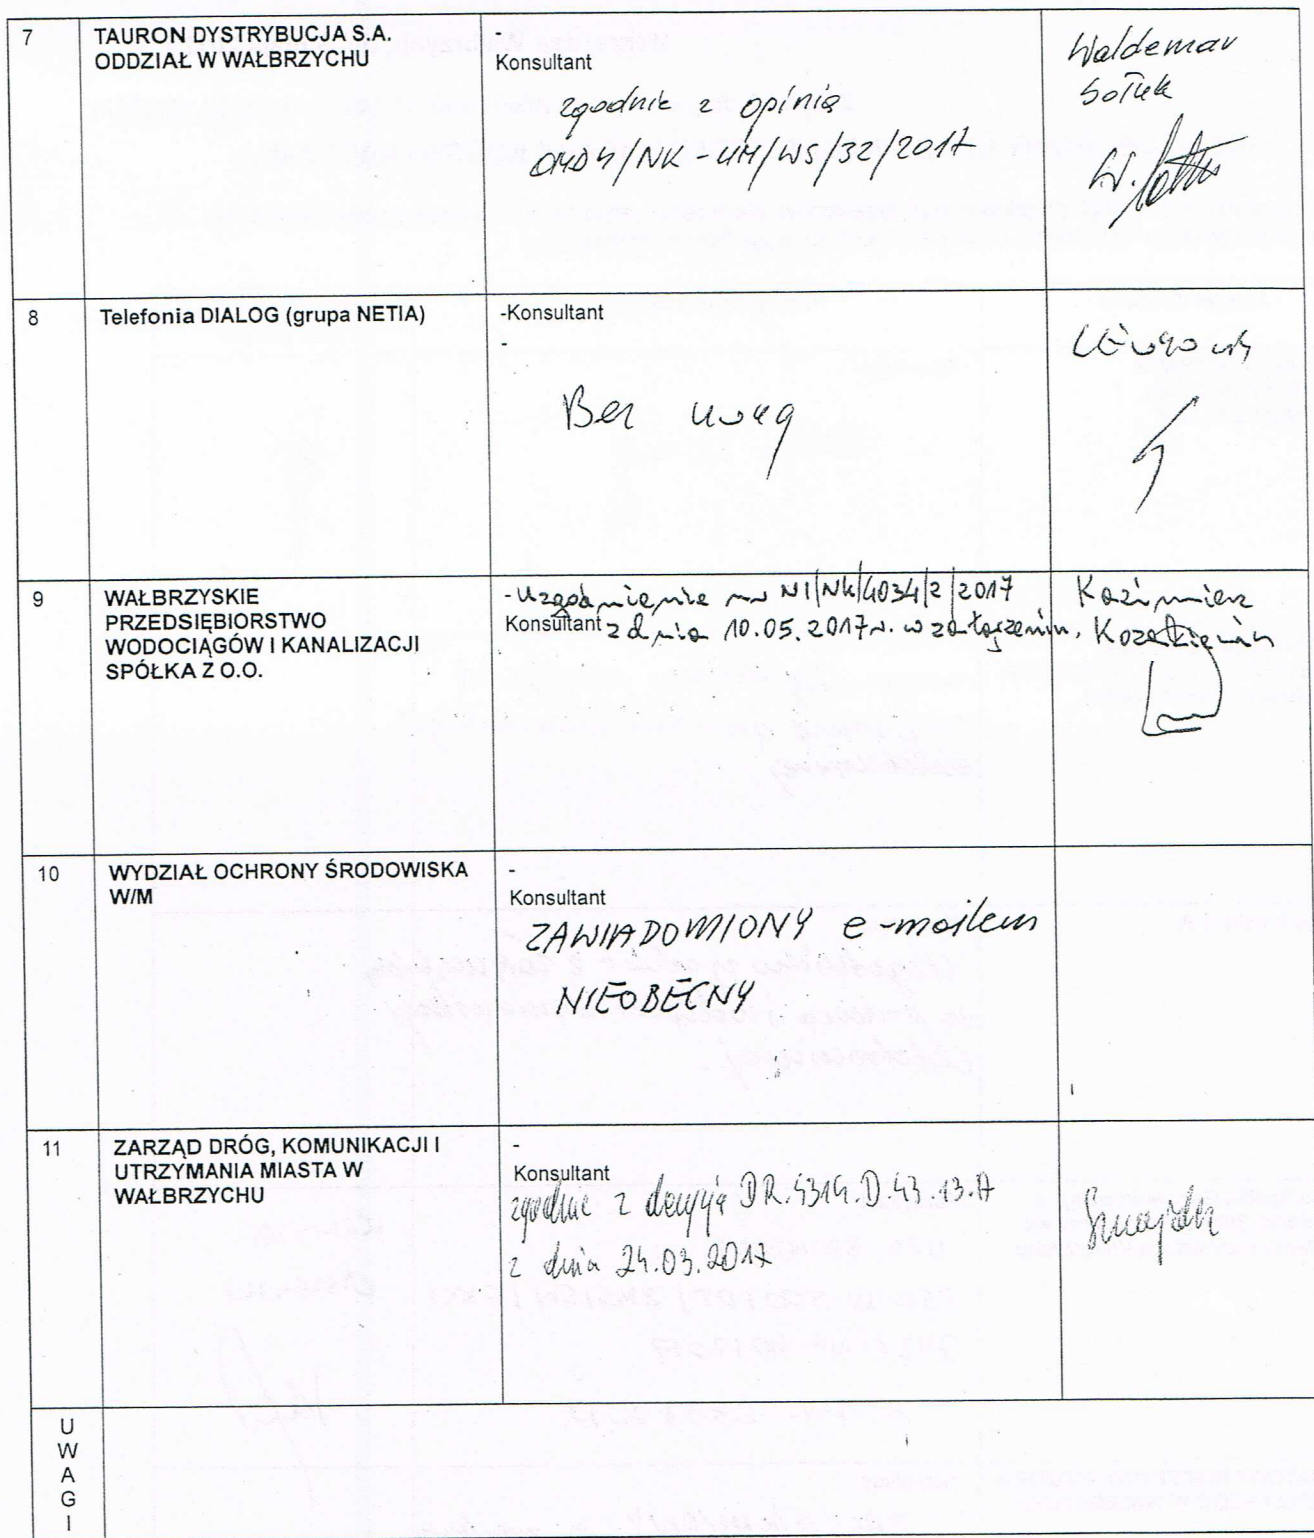 7
TAURON DYSTRYBUCJA S.A.
ODDZIAŁ W WAŁBRZYCHU
-
Konsultant
zgodnie z opinią
/NK-UM/WS/32/2017
Waldemar
Sołek
W.
8
Telefonia DIALOG (grupa NETIA)
-Konsultant
-
Bez uwag
9
WAŁBRZYSKIE
PRZEDSIĘBIORSTWO
WODOCIĄGÓW I KANALIZACJI
SPÓŁKA Z O.O.
-Uzgodnienie nr NI/NK/4034/2/2017
Konsultant z dnia 10.05.2017r. w załączeniu.
Kazimierz
10
WYDZIAŁ OCHRONY ŚRODOWISKA
W/M
-
Konsultant
ZAWIADOMIONY e-mailem
NIEOBECNY
11
ZARZĄD DRÓG, KOMUNIKACJI I
UTRZYMANIA MIASTA W
WAŁBRZYCHU
-
Konsultant
zgodnie z decyzją DR.4314.D.43.13.A
z dnia 24.03.2017
U
W
A
G
I